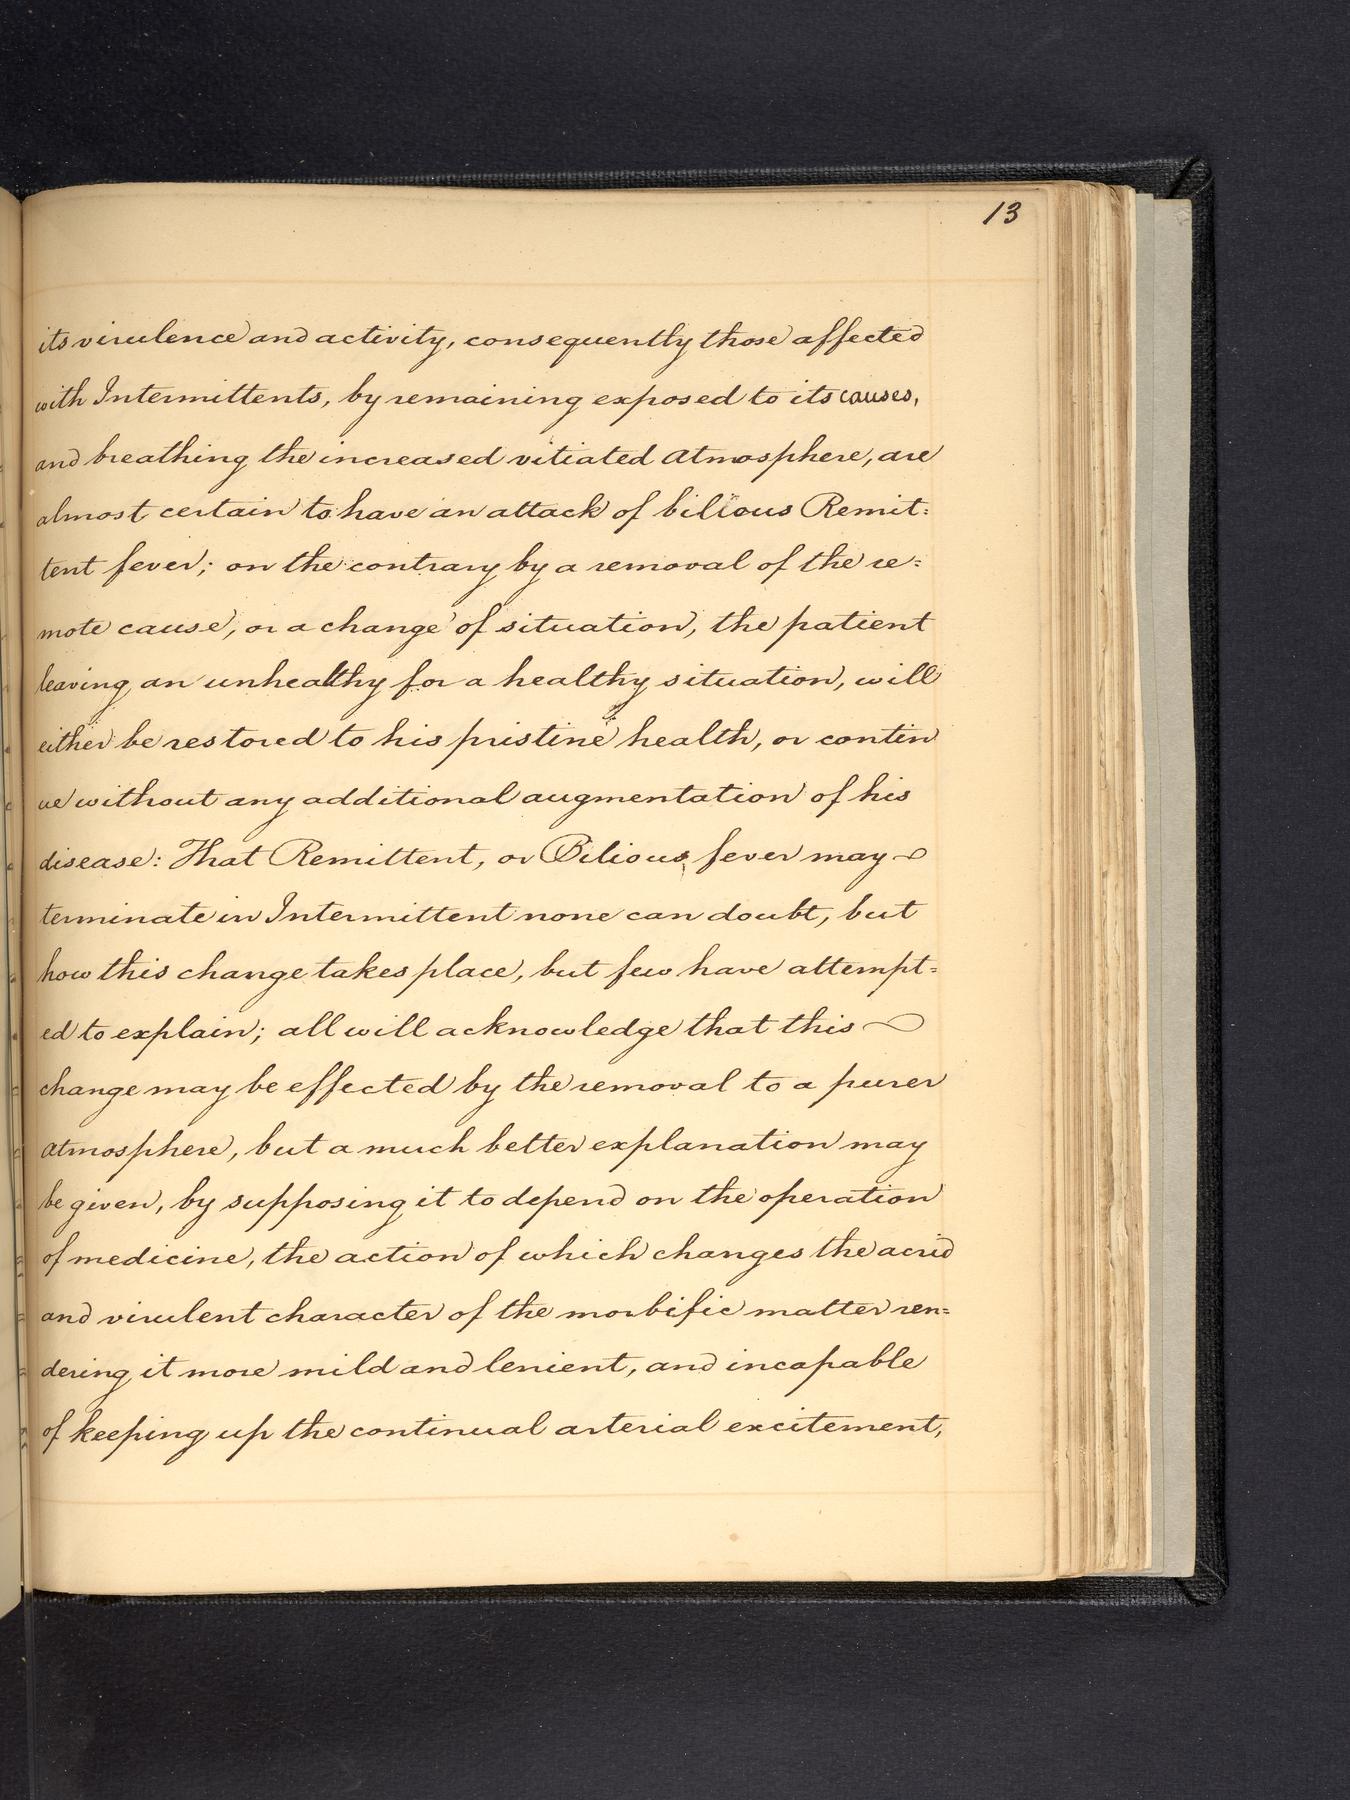 13
its virulence and activity, consequently those affected
with Intermittents, by remaining exposed to its causes,
and breathing the increased vitiated atmosphere, are
almost certain to have an attack of bilious Remit:
tent fever; on the contrary by a removal of the re:
mote cause, or a change of situation, the patient
leaving an unhealthy for a healthy situation, will
either be restored to his pristine health, or contin
ue without any additional augmentation of his
disease: That Remittent, or Bilious fever may
terminate in Intermittent none can doubt, but
how this change takes place, but few have attempt=
ed to explain; all will acknowledge that this
change may be effected by the removal to a purer
atmosphere, but a much better explanation may
be given, by supposing it to depend on the operation
of medicine, the action of which changes the acrid
and virulent character of the morbific matter ren=
dering it more mild and lenient, and incapable
of keeping up the continual arterial excitement,